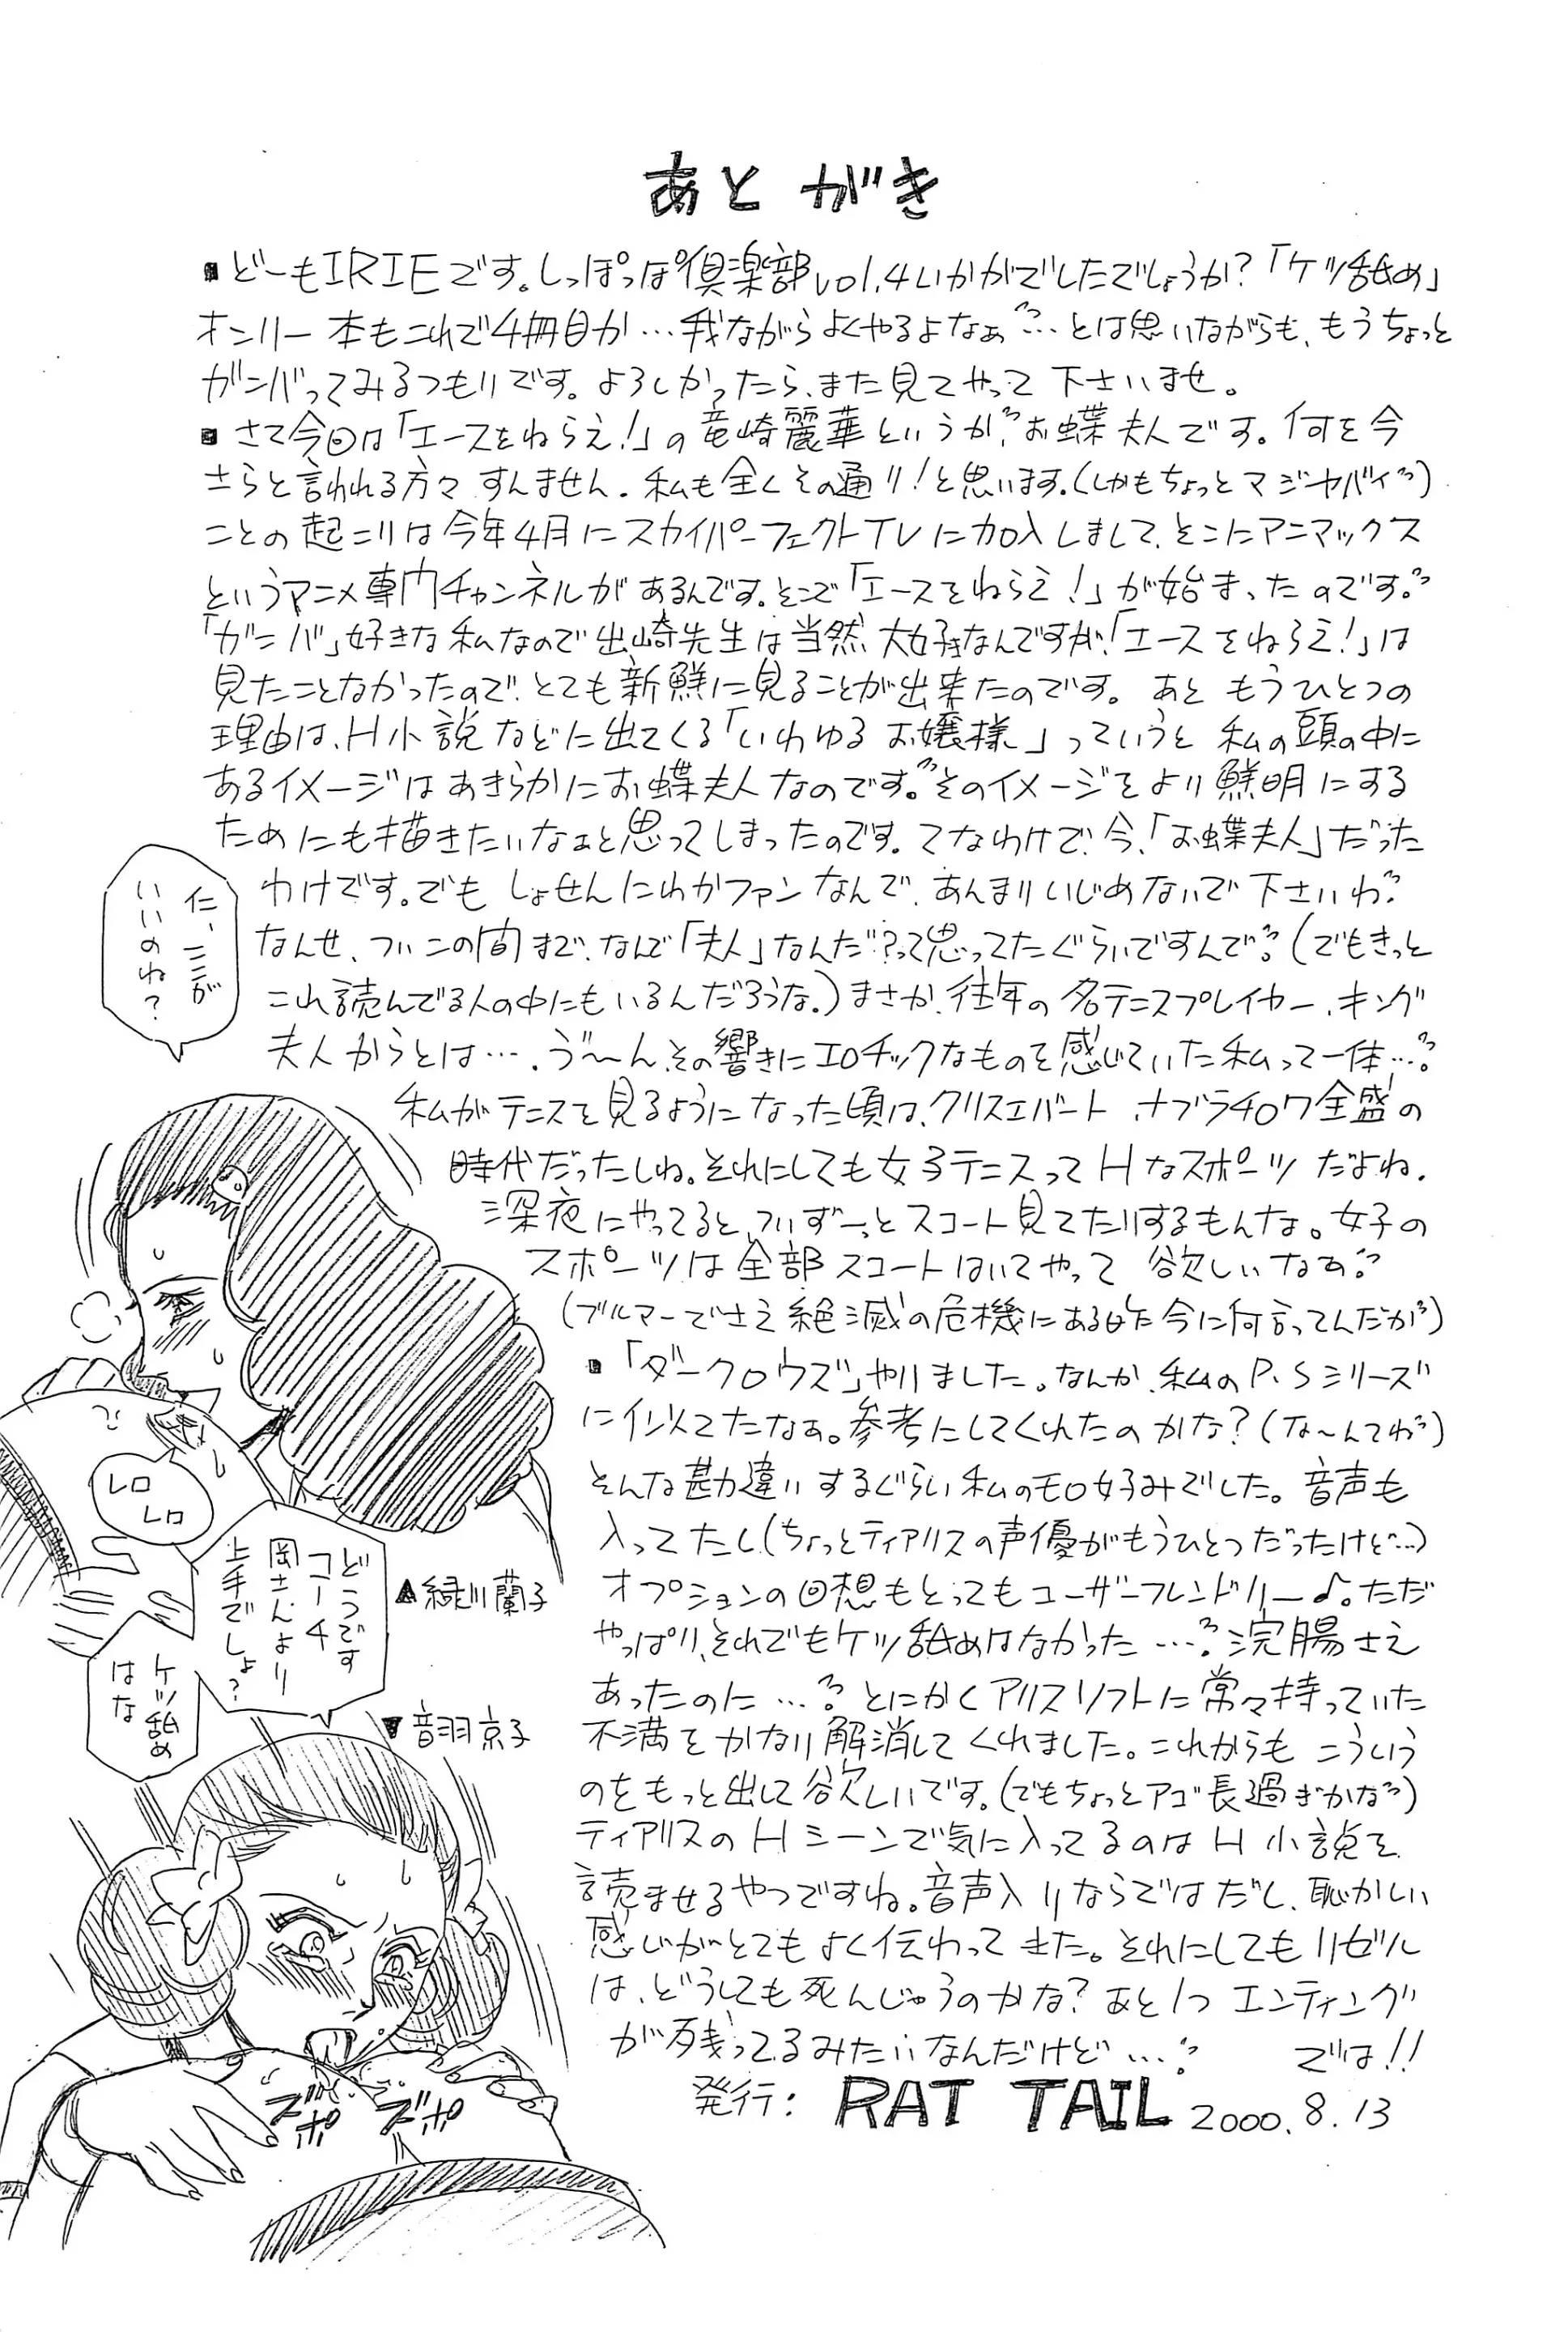 あとがき
■どーもIRIEです。しっぽっぽ倶楽部vol.4いかがでしたでしょうか?「ケツ舐め」
オンリー本もこれで4冊目か…我ながらよくやるよなぁ…とは思いながらも、もうちょっと
ガンバってみるつもりです。よろしかったら、また見てやって下さいませ。
■さて今回は「エースをねらえ!」の竜崎麗華というか、お蝶夫人です。何を今
さらと言われる方々すんません。私も全くその通り!と思います。(しかもちょっとマジヤバイ)
ことの起こりは今年4月にスカイパーフェクトTVに加入しまして、そこにアニマックス
というアニメ専門チャンネルがあるんです。そこで「エースをねらえ!」が始まったのです。
「ガンバ」好きな私なので出崎先生は当然、大好きなんですが、「エースをねらえ!」は
見たことなかったので、とても新鮮に見ることが出来たのです。あともうひとつの
理由は、H小説などに出てくる「いわゆるお嬢様」っていうと私の頭の中に
あるイメージはあきらかにお蝶夫人なのです。そのイメージをより鮮明にする
ためにも描きたいなぁと思ってしまったのです。てなわけで、今、「お蝶夫人」だった
わけです。でもしょせんにわかファンなんで、あんまりいじめないで下さいわ。
なんせ、ついこの間まで、なんで「夫人」なんだ?って思ってたぐらいですんで。(でもきっと
これ読んでる人の中にもいるんだろうな。)まさか、往年の名テニスプレイヤー、キング
夫人からとは…。う゛〜ん、その響きにエロチックなものを感じていた私って一体…。
私がテニスを見るようになった頃は、クリスエバート、ナブラチロワ全盛の
時代だったしね。それにしても女子テニスってHなスポーツだよね。
深夜にやってると、ついずーっとスコート見てたりするもんな。女子の
スポーツは全部スコートはいてやって欲しいなぁ。
(ブルマーでさえ絶滅の危機にある昨今に何言ってんだか)
■「ダークロウズ」やりました。なんか、私のP.Sシリーズ
に似てたなぁ。参考にしてくれたのかな?(な〜んてね)
そんな勘違いするぐらい私のモロ好みでした。音声も
入ってたし(ちょっとティアリスの声優がもうひとつだったけど…)
オプションの回想もとってもユーザーフレンドリー♪。ただ
やっぱり、それでもケツ舐めはなかった…。浣腸さえ
あったのに…。とにかくアリスソフトに常々持っていた
不満をかなり解消してくれました。これからもこういう
のをもっと出して欲しいです。(でもちょっとアゴ長過ぎかな)
ティアリスのHシーンで気に入ってるのはH小説を
読ませるやつですね。音声入りならではだし、恥かしい
感じがとてもよく伝わってきた。それにしてもリゼル
は、どうしても死んじゃうのかな?あと1つエンディング
が残ってるみたいなんだけど…。では!!
発行:RAT TAIL 2000.8.13